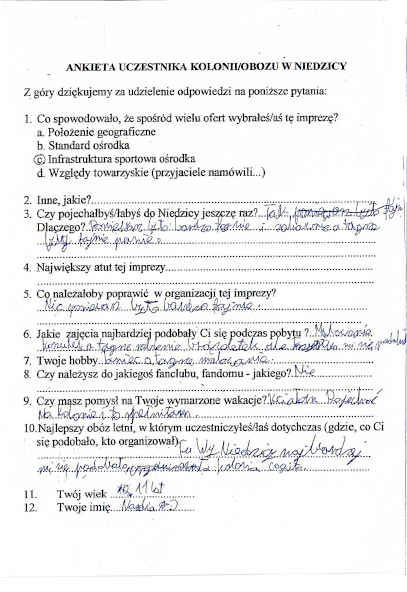 ANKIETA UCZESTNIKA KOLONII/OBOZU W NIEDZICY
Z góry dziękujemy za udzielenie odpowiedzi na poniższe pytania:
1. Co spowodowało, że spośród wielu ofert wybrałeś/aś tę imprezę?
a. Położenie geograficzne
b. Standard ośrodka
c. Infrastruktura sportowa ośrodka
d. Względy towarzyskie (przyjaciele namówili...)
2. Inne, jakie?
3. Czy pojechałbyś/łabyś do Niedzicy jeszcze raz? Tak, było
Dlaczego? Ponieważ było bardzo fajnie i
były fajnie panie.
4. Największy atut tej imprezy
5. Co należałoby poprawić w organizacji tej imprezy?
Nic ponieważ było bardzo fajnie.
6. Jakie zajęcia najbardziej podobały Ci się podczas pobytu ? Malowanie
koszulek a także robienie
7. Twoje hobby taniec a także malowanie.
8. Czy należysz do jakiegoś fanclubu, fandomu - jakiego? Nie
9. Czy masz pomysł na Twoje wymarzone wakacje?
Na kolonie i to spełniłam.
10. Najlepszy obóz letni, w którym uczestniczyłeś/łaś dotychczas (gdzie, co Ci
się podobało, kto organizował) Tu W Niedzicy najbardziej
mi się podobało, kolonia
11. Twój wiek 11 lat
12. Twoje imię